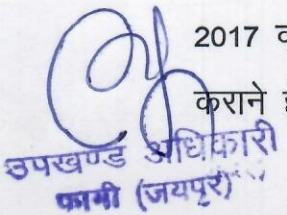 2017 व
कराने ह
उपखण्ड अधिकारी
फागी (जयपुर)